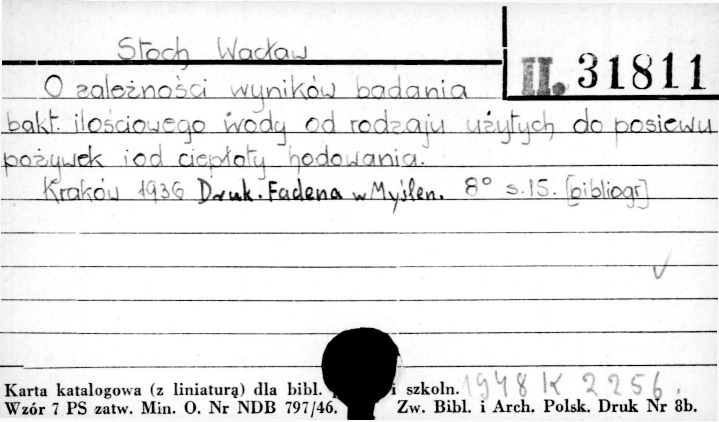 Stoch Wacław
II. 31811
O zależności wyników badania
bakt. ilościowego wody od rodzaju użytych do posiewu
pożywek i od ciepłoty hodowania.
Kraków 1936 Druk. Fadena w Myślen. 8° s. 15. [bibliogr]
Karta katalogowa (z liniaturą) dla bibl. i szkoln. 1948 K 2256.
Wzór 7 PS zatw. Min. O. Nr NDB 797/46. Zw. Bibl. i Arch. Polsk. Druk Nr 8b.